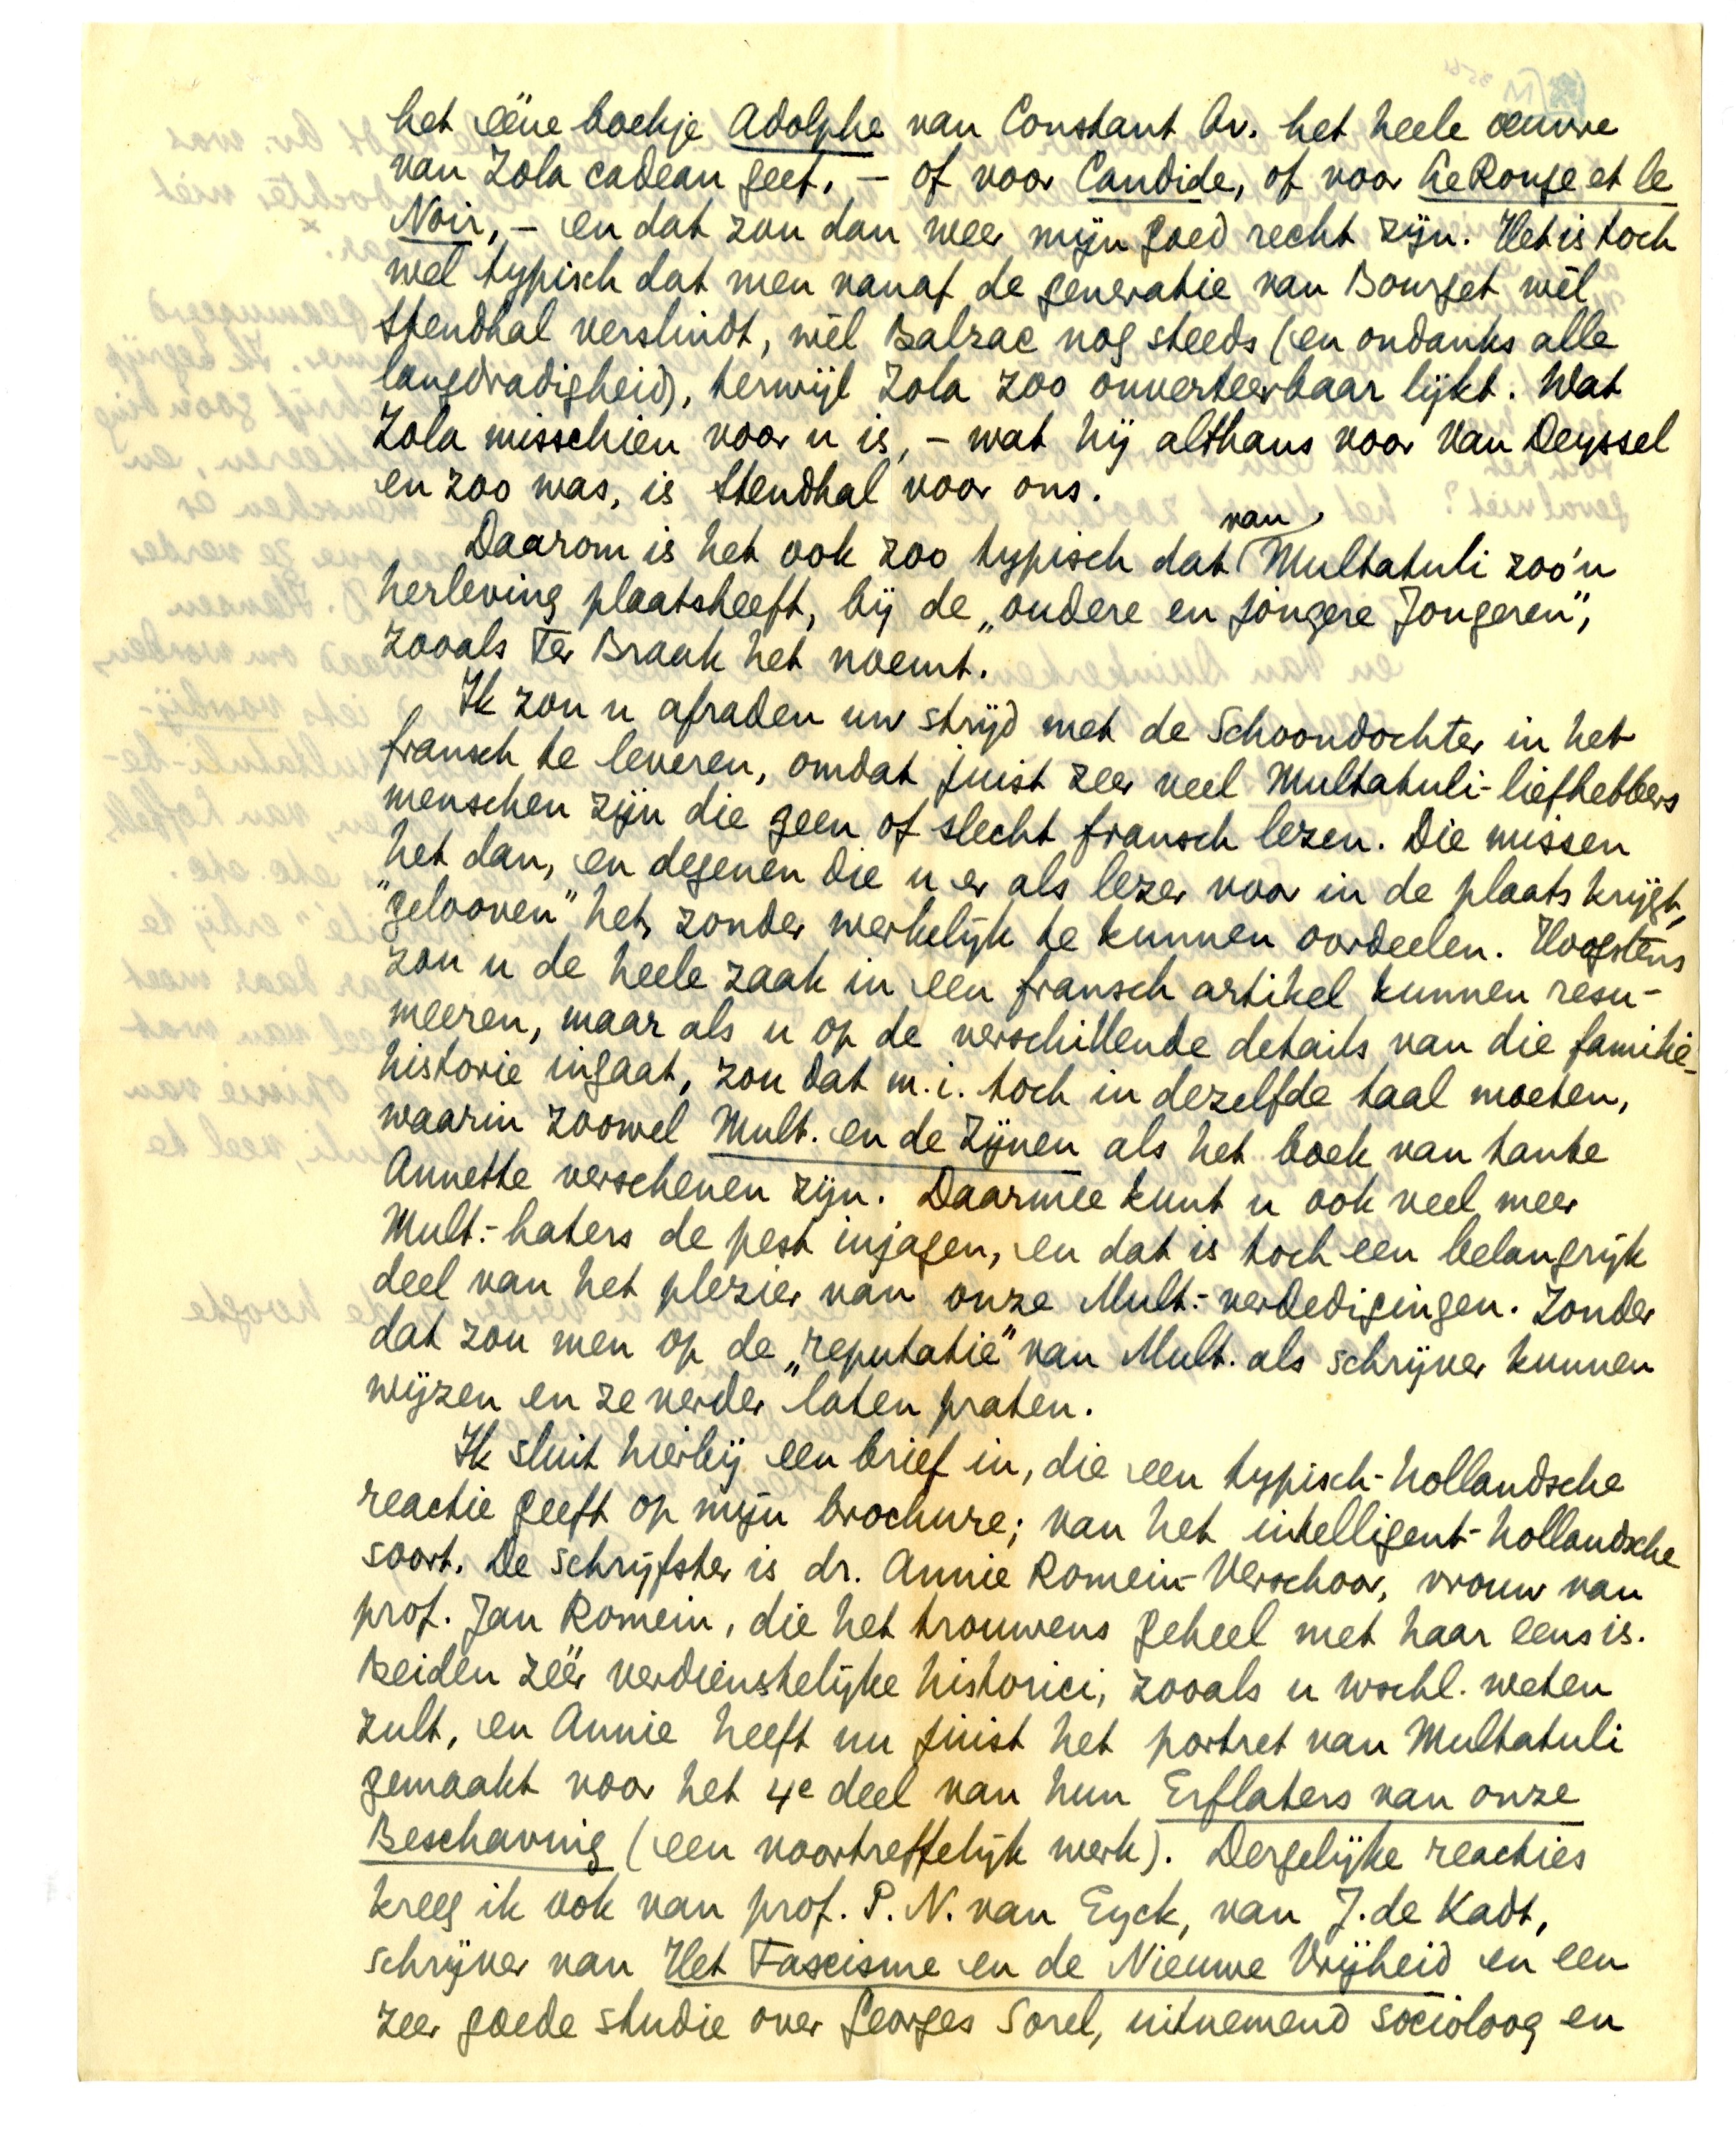 het ééne boekje Adolphe van Constant bv. het heele oeuvre
van Zola cadeau geef, – of voor Candide, of voor Le Rouge et le
Noir, – en dat zou dan weer mijn goed recht zijn. Het is toch
wel typisch dat men vanaf de generatie van Bourget wèl
Stendhal verslindt, wèl Balzac nog steeds (en ondanks alle
langdradigheid), terwijl Zola zoo onverteerbaar lijkt. Wat
Zola misschien voor u is, – wat hij althans voor Van Deyssel
en zoo was, is Stendhal voor ons.
Daarom is het ook zoo typisch dat van Multatuli zoo'n
herleving plaatsheeft, bij de „oudere en jongere Jongeren”,
zooals Ter Braak het noemt.
Ik zou u afraden uw strijd met de Schoondochter in het
fransch te leveren, omdat juist zeer veel Multatuli-liefhebbers
menschen zijn die geen of slecht fransch lezen. Die missen
het dan, en degenen die u er als lezer voor in de plaats krijgt,
"gelooven" het, zonder werkelijk te kunnen oordeelen. Hoogstens
zou u de heele zaak in een fransch artikel kunnen resu-
meeren, maar als u op de verschillende details van die familie-
historie ingaat, zou dat m.i. toch in dezelfde taal moeten,
waarin zoowel Mult. en de Zijnen als het boek van tante
Annette verschenen zijn. Daarmee kunt u ook veel meer
Mult.-haters de pest injagen, en dat is toch een belangrijk
deel van het plezier van onze Mult.-verdedigingen. Zonder
dat zou men op de „reputatie” van Mult. als schrijver kunnen
wijzen en ze verder laten praten.
Ik sluit hierbij een brief in, die een typisch-hollandsche
reactie geeft op mijn brochure; van het intelligent-hollandsche
soort. De schrijfster is dr. Annie Romein-Verschoor, vrouw van
prof. Jan Romein, die het trouwens geheel met haar eens is.
Beiden zéér verdienstelijke historici, zooals u wschl. weten
zult, en Annie heeft nu juist het portret van Multatuli
gemaakt voor het 4e deel van hun Erflaters van onze
Beschaving (een voortreffelijk werk). Dergelijke reacties
kreeg ik ook van prof. P. N. van Eyck, van J. de Kadt,
schrijver van Het Fascisme en de Nieuwe Vrijheid en een
zeer goede studie over Georges Sorel, uitnemend socioloog en